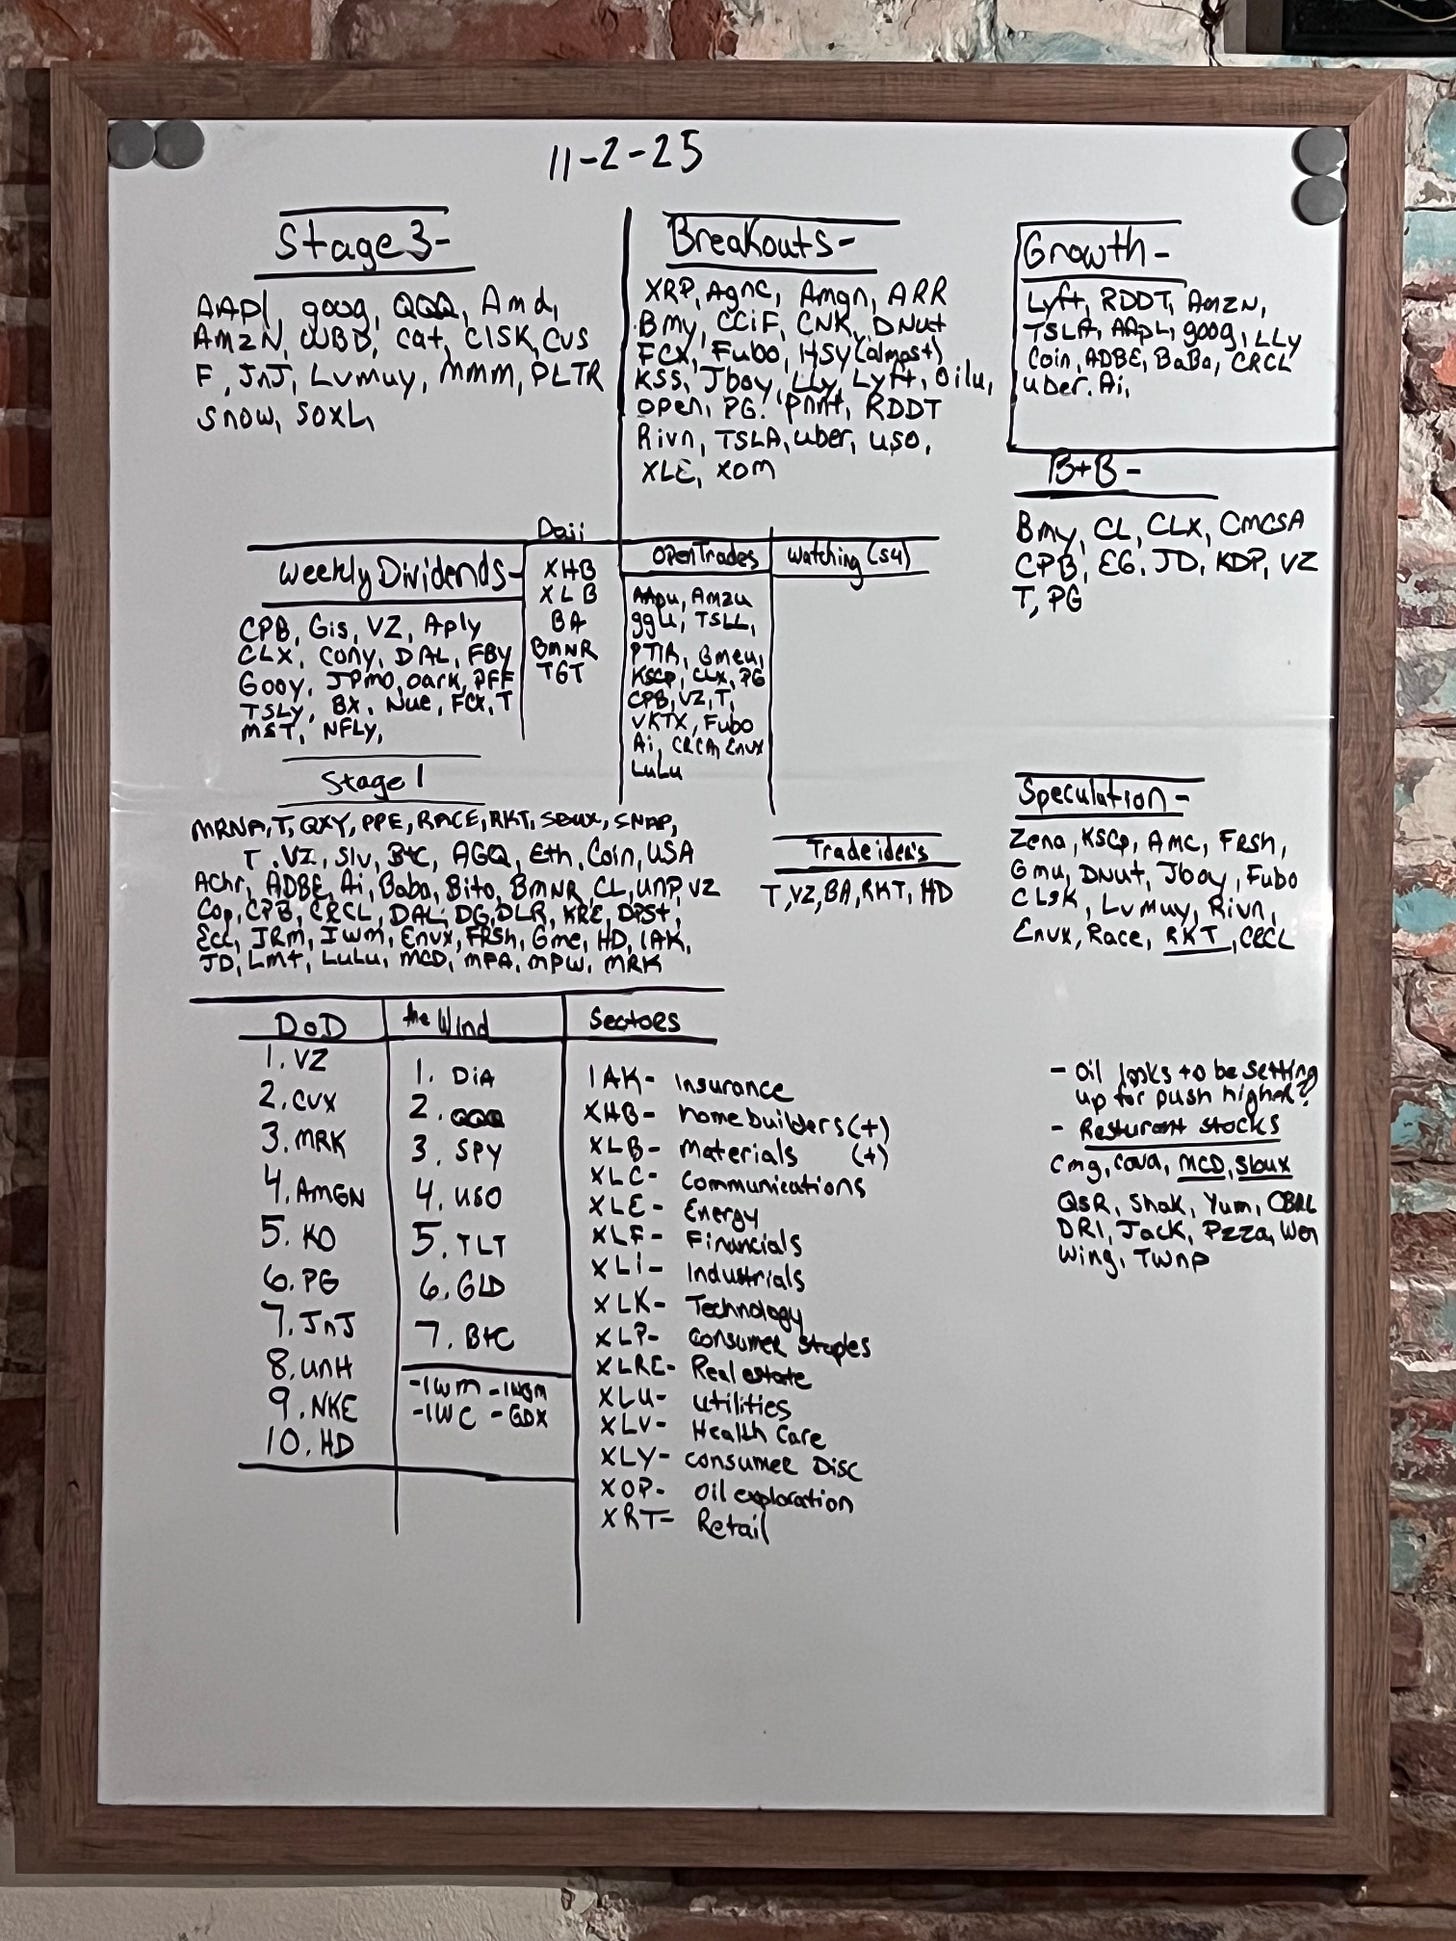 11-2-25
Stage 3-
AAPl, goog, QQQ, Amd,
AmzN, WBD, cat, ClSK, CVS
F, JnJ, Lvmuy, mmm, PLTR
Snow, SOXL,
Breakouts-
XRP, Agnc, Amgn, ARR
Bmy, CCiF, CNK, DNut
FCX, Fubo, HSY (almost)
KSS, Jboy, LLy, Lyft, Oilu,
Open, PG. pnnt, RDDT
Rivn, TSLA, uber, uso,
XLE, XOM
Growth-
Lyft, RDDT, AmZN,
TSLA, AApL, goog, LLy
Coin, ADBE, BaBa, CRCL
uber. Ai,
B+B-
Bmy, CL, CLX, CMCSA
CPB, EG, JD, KDP, VZ
T, PG
Weekly Dividends-
CPB, Gis, VZ, Aply
CLX, Cony, DAL, FBy
Gooy, JPmo, oark, PFF
TSLy, BX, Nue, FCX, T
MST, NFLy,
Daii
XHB
XLB
BA
BMNR
TGT
Open Trades
AApu, Amzu
ggu, TSLL,
PTIR, Bmeu,
KScp, CLX, PG
CPB, VZ, T,
VKTX, Fubo
Ai, CRCA, Envx
LuLu
Watching (s4)
Stage 1
MRNA, T, QXY, PPE, RACE, RKT, SBUX, SNAP,
T, VZ, Slv, BtC, AGQ, Eth, Coin, USA
AChr, ADBE, Ai, Baba, Bito, BMNR, CL, unp, VZ
Cop, CPB, CRCL, DAL, DG, DLR, KRE, DPSt,
Ecl, IRm, Iwm, Envx, FRSh, Gme, HD, IAK,
JD, Lmt, LuLu, MCD, MPA, MPW, MRK
Trade idea's
T, VZ, BA, RKT, HD
Speculation-
Zena, KScp, Amc, FRSh,
Gmu, DNut, Jboy, Fubo
CLSK, Lvmuy, Rivn,
Envx, Race, RKT, CRCL
DoD
1. VZ
2. CVX
3. MRK
4. AMGN
5. KO
6. PG
7. JnJ
8. unH
9. NKE
10. HD
the Wind
1. DiA
2. QQQ
3. SPY
4. USO
5. TLT
6. GLD
7. BtC
-IWM
-IWC -GDX
Sectors
IAK- Insurance
XHB- homebuilders (+)
XLB- Materials (+)
XLC- Communications
XLE- Energy
XLF- Financials
XLi- Industrials
XLK- Technology
XLP- Consumer staples
XLRE- Real estate
XLU- utilities
XLV- Health Care
XLY- consumer Disc
XOP- oil exploration
XRT- Retail
- Oil looks to be setting
up for push higher?
- Resturant stocks
Cmg, Cava, MCD, Sbux
QSR, Shak, Yum, CBRL
DRI, Jack, Pzza, Wen
Wing, TWNP